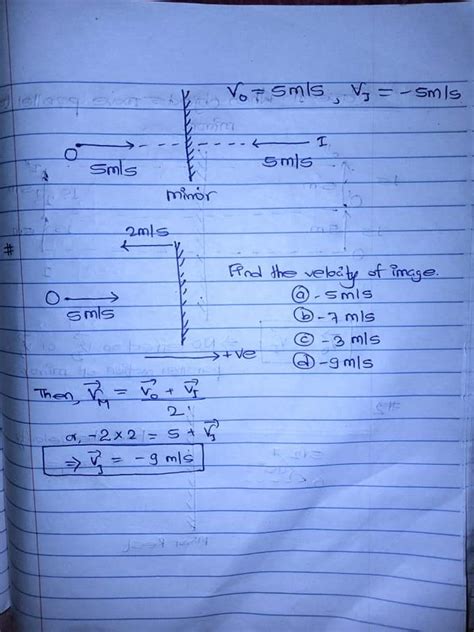 V₀ = 5m/s, V_I = -5m/s
O
5m/s
I
5m/s
mirror
#
2m/s
O
5m/s
Find the velocity of image.
ⓐ -5m/s
ⓑ -7 m/s
ⓒ -3 m/s
ⓓ -9 m/s
+ve
Then, V⃗_M = (V⃗₀ + V⃗_I)/2
or, -2×2 = 5 + V⃗_I
⇒ V⃗_I = -9 m/s